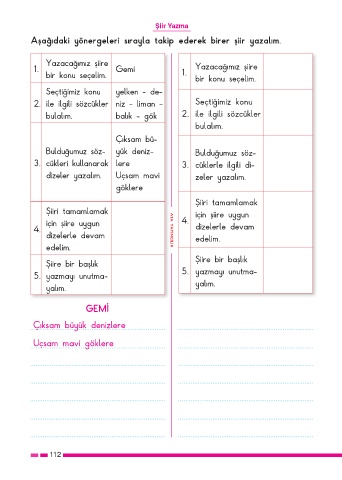 Şiir Yazma
Aşağıdaki yönergeleri sırayla takip ederek birer şiir yazalım.
1. Yazacağımız şiire bir konu seçelim.
Gemi
2. Seçtiğimiz konu ile ilgili sözcükler bulalım.
yelken - de-
niz - liman -
balık - gök
3. Bulduğumuz söz-
cükleri kullanarak
dizeler yazalım.
Çıksam bü-
yük deniz-
lere
Uçsam mavi
göklere
4. Şiiri tamamlamak
için şiire uygun
dizelerle devam
edelim.
5. Şiire bir başlık
yazmayı unutma-
yalım.
1. Yazacağımız şiire
bir konu seçelim.
2. Seçtiğimiz konu
ile ilgili sözcükler
bulalım.
3. Bulduğumuz söz-
cüklerle ilgili di-
zeler yazalım.
4. Şiiri tamamlamak
için şiire uygun
dizelerle devam
edelim.
5. Şiire bir başlık
yazmayı unutma-
yalım.
GEMİ
Çıksam büyük denizlere
Uçsam mavi göklere
112